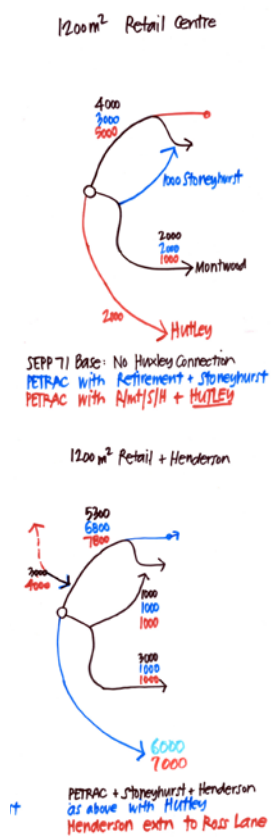 1200m² Retail Centre
4000
3000
5000
1000 Stoneyhurst
2000
2000
1000
Montwood
2000
Hutley
SEPP 71 Base: No Huxley Connection
PETRAC with Retirement + Stoneyhurst
PETRAC with R/mt/S/H + HUTLEY
1200m² Retail + Henderson
5300
6800
7800
3000
4000
1000
1000
1000
3000
1000
1000
6000
7000
PETRAC + Stoneyhurst + Henderson
as above with Hutley
Henderson extn to Ross Lane